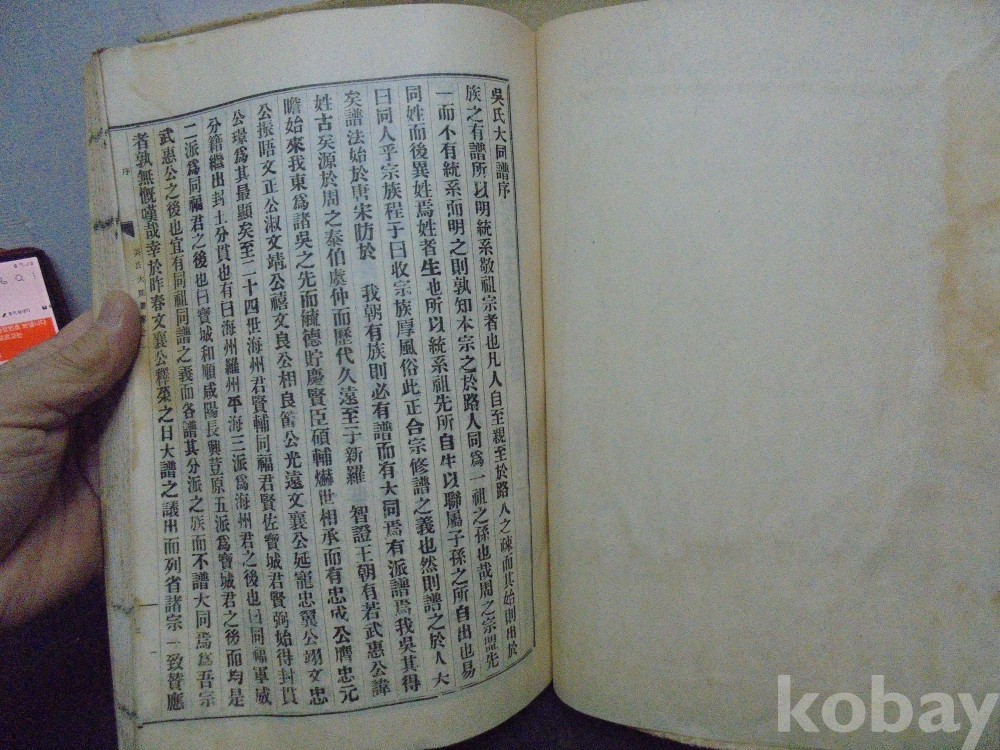 吳氏大同譜序
族之有譜所以明統系敬祖宗者也凡人自至親至於路人之疎而其始則出於
一而不有統系而明之則孰知本宗之於路人同爲一祖之孫也哉周之宗盟先
同姓而後異姓焉姓者生也所以統系祖先所自生以聯屬子孫之所自出也易
曰同人乎宗族程子曰收宗族厚風俗此正合宗修譜之義也然則譜之於人大
矣譜法始於唐宋昉於 我朝有族則必有譜而有大同焉有派譜焉我吳其得
姓古矣源於周之泰伯虞仲而歷代久遠至于新羅 智證王朝有若武惠公諱
瞻始來我東爲諸吳之先而毓德貯慶賢臣碩輔爀世相承而有忠成公膺忠元
公振晤文正公淑文靖公禧文良公相良舊公光遠文襄公延寵忠翼公翊文忠
公璟爲其最顯矣至二十四世海州君賢輔同福君賢佐寶城君賢弼始得封貫
分籍繼出封土分貫也有曰海州羅州平海三派爲海州君之後也曰同福軍威
二派爲同福君之後也曰寶城和順咸陽長興荳原五派爲寶城君之後而均是
武惠公之後也宜有同祖同譜之義而各譜其分派之族而不譜大同焉爲吾宗
者孰無慨嘆哉幸於昨春文襄公釋菜之日大譜之議出而列省諸宗一致賛應
序
吳氏大同譜
kobay